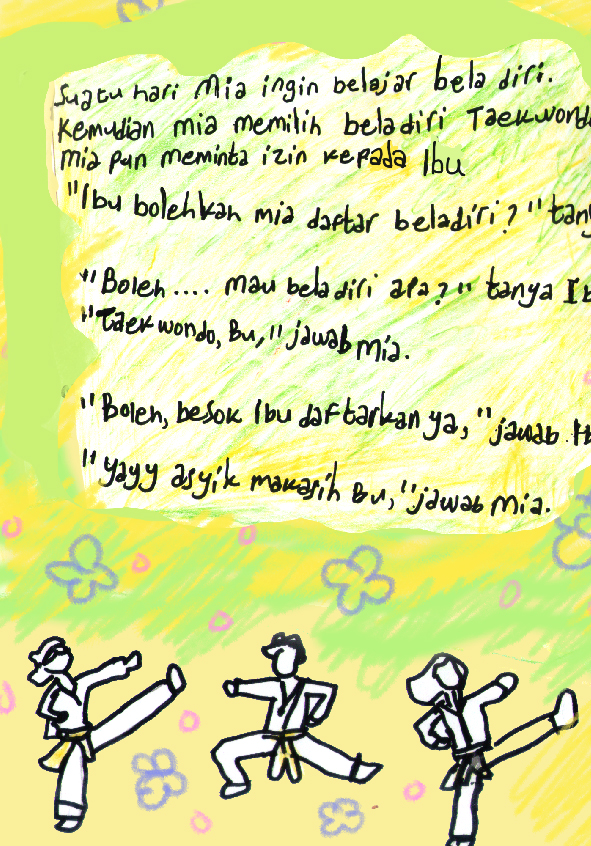 Suatu hari Mia ingin belajar bela diri.
Kemudian mia memilih beladiri Taekwondo
mia pun meminta izin kepada Ibu
"Ibu bolehkah mia daftar beladiri?" tany
"Boleh .... mau beladiri apa?" tanya Ib
"Taekwondo, Bu," jawab mia.
"Boleh, besok Ibu daftarkan ya," jawab Ib
"yayy asyik makasih Bu," jawab mia.